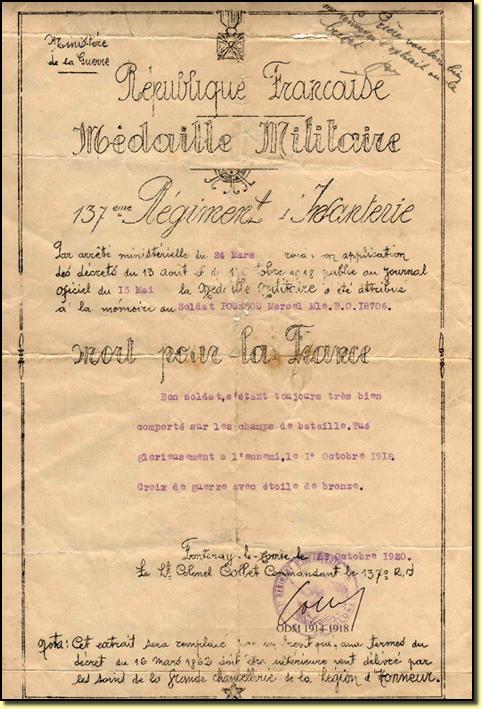 Ministère
de la Guerre
Prière
République Française
Médaille Militaire
137eme Régiment d'Infanterie
Par arrêté ministérielle du 24 Mars rendu en application
des décrets du 13 Août et du 1er Octobre 1918 publié au Journal
Officiel du 15 Mai la Médaille Militaire a été attribué
à la mémoire du Soldat Marcel Mle. R.O. 18706.
mort pour la France
Bon soldat, s'étant toujours très bien
comporté sur les champs de bataille. Tué
glorieusement a l'ennemi, le 1e Octobre 1918
Croix de guerre avec étoile de bronze.
Fontenay-le-Comte le 22 Octobre 1920.
Le Lt Colonel Commandant le 137e R.I
ODM 1914-1918
Nota: Cet extrait sera remplacé par un aux termes du
décret du 16 Mars 1852 doit être ultérieure ment délivré par
les soins de la Grande chancellerie de la Légion d'Honneur.